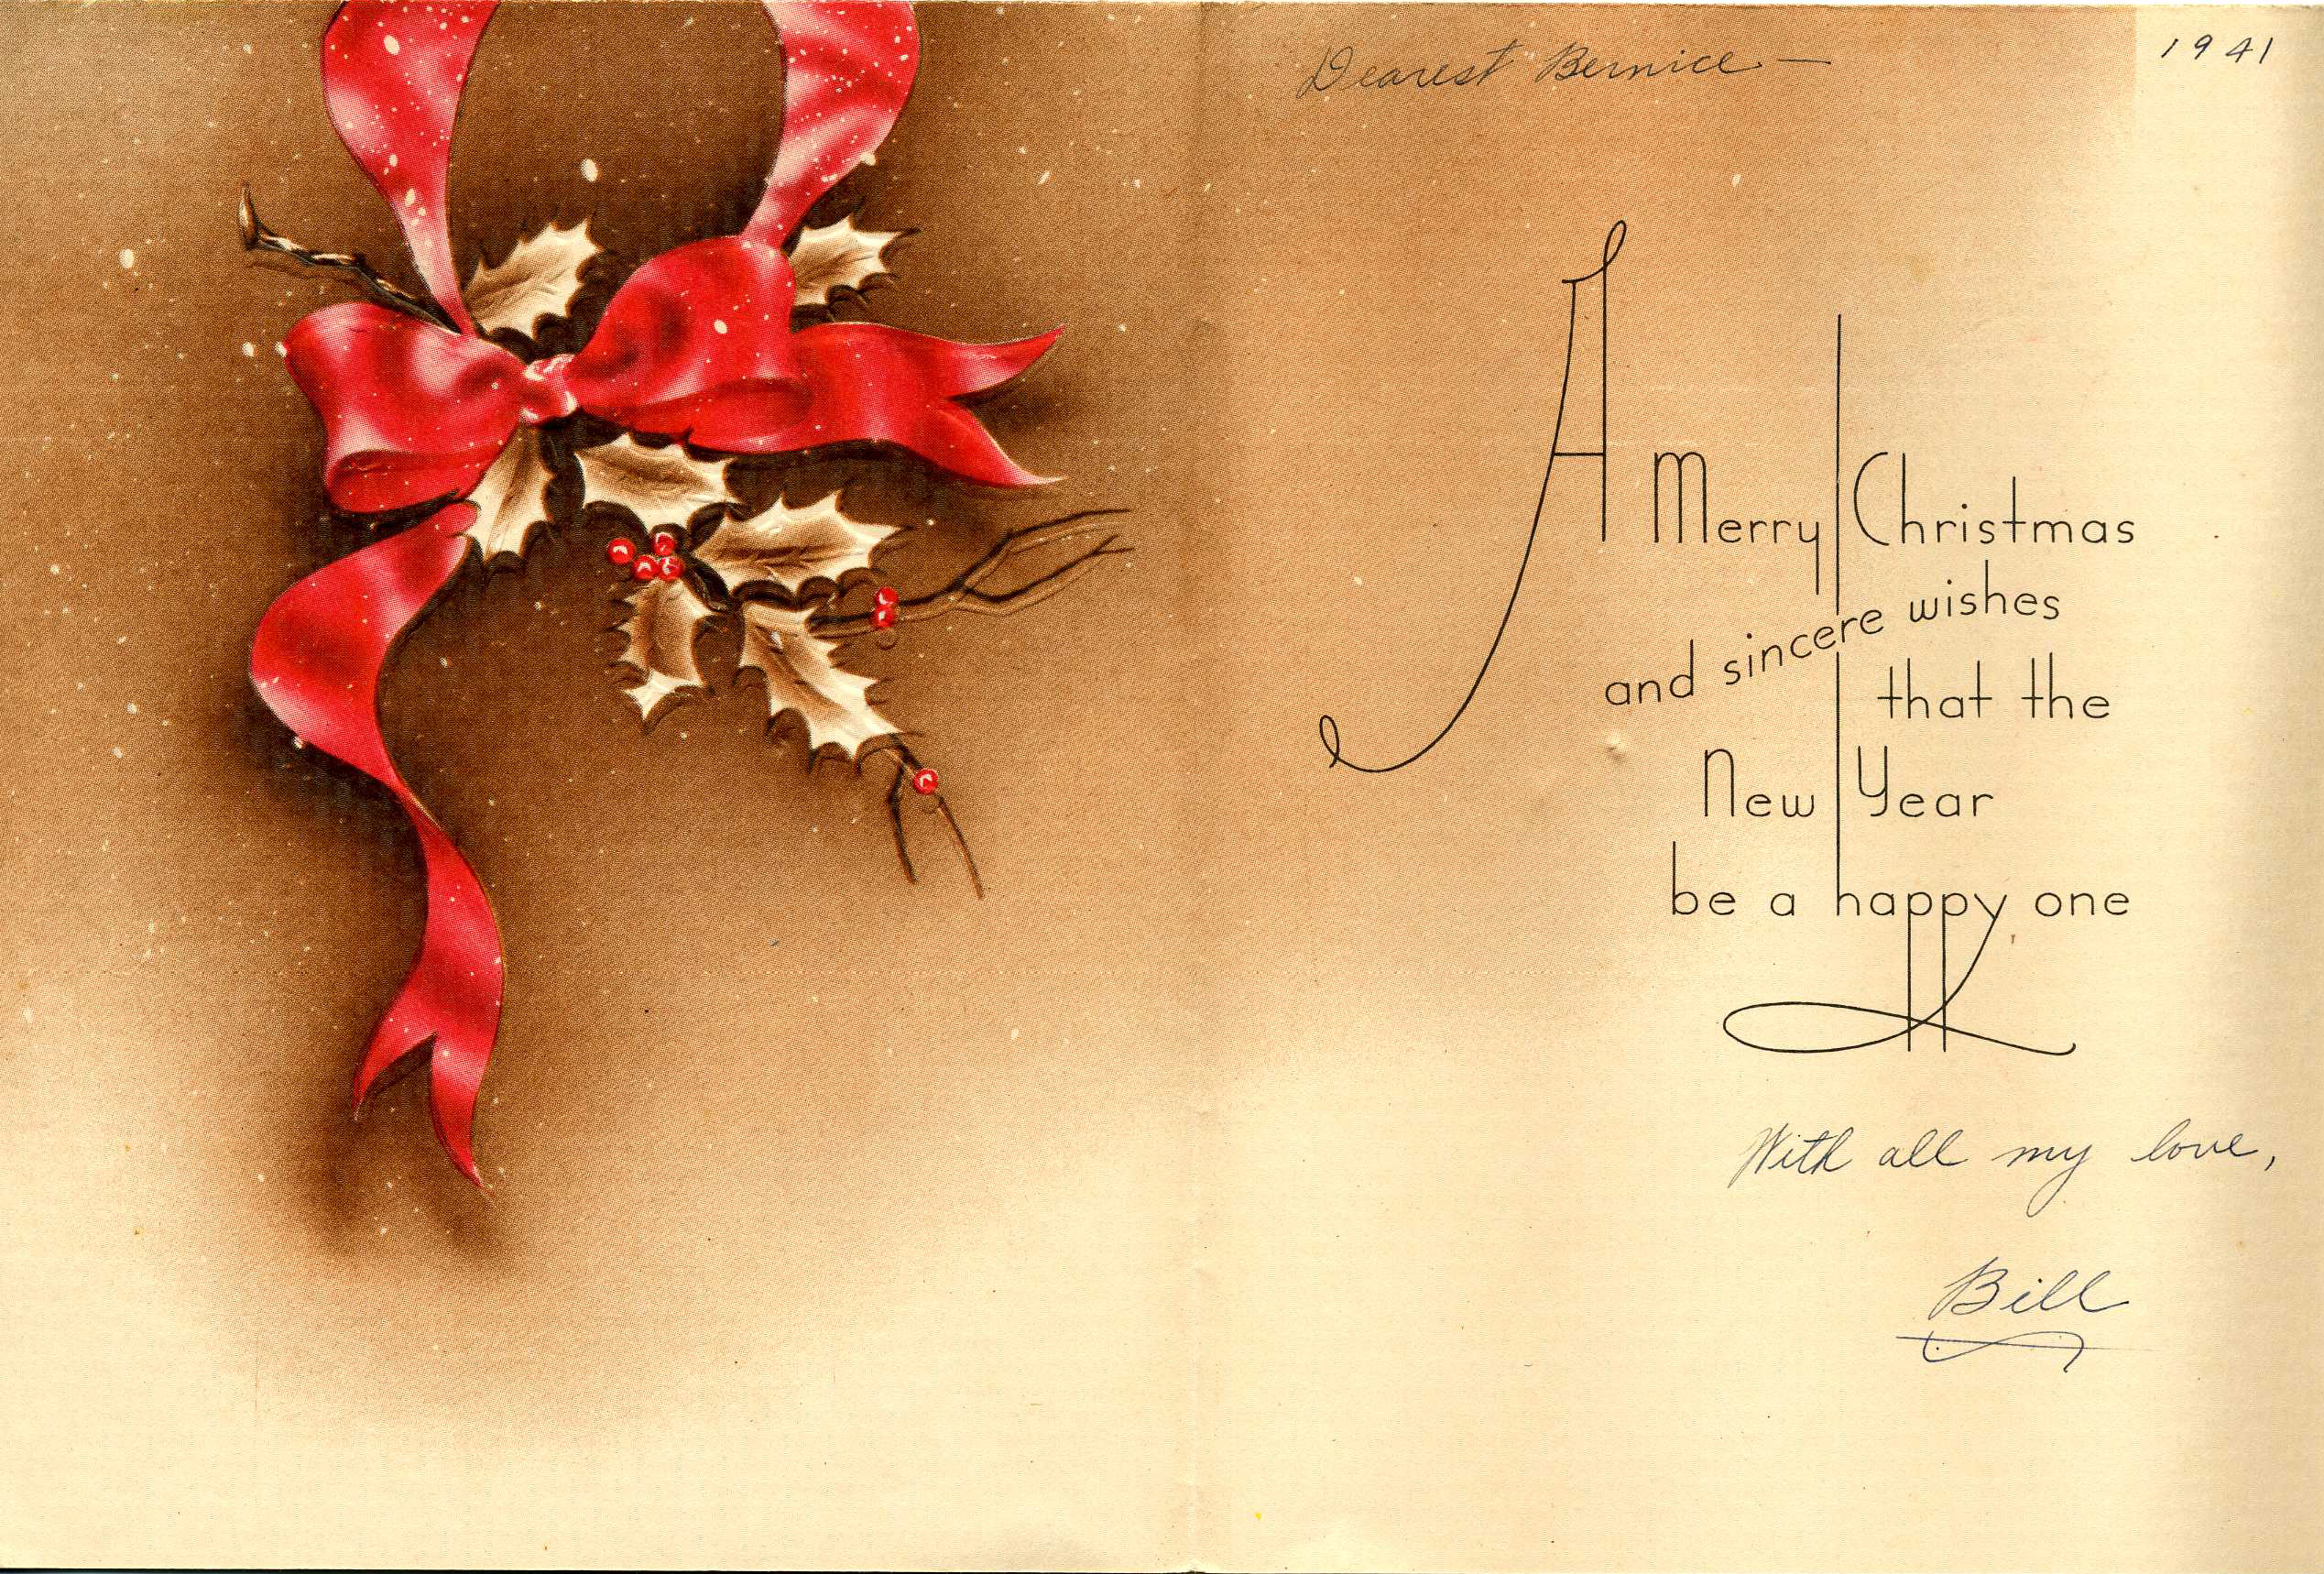 1941
Dearest Bernice —
A Merry Christmas
and sincere wishes
that the
New Year
be a happy one
With all my love,
Bill